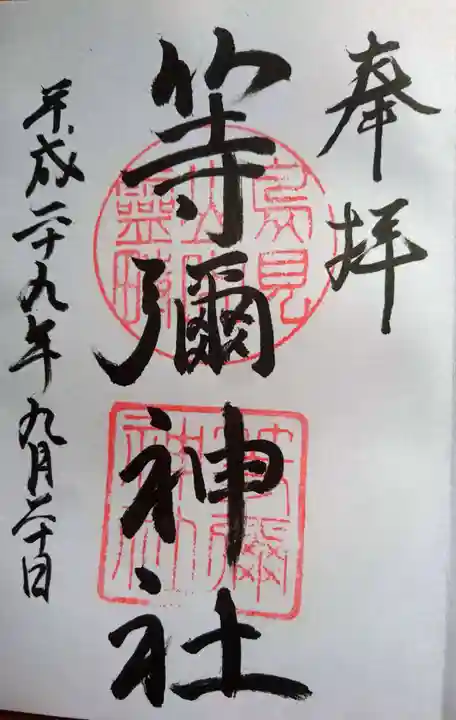 奉拝
等彌神社
平成二十九年九月二十日
等彌神社